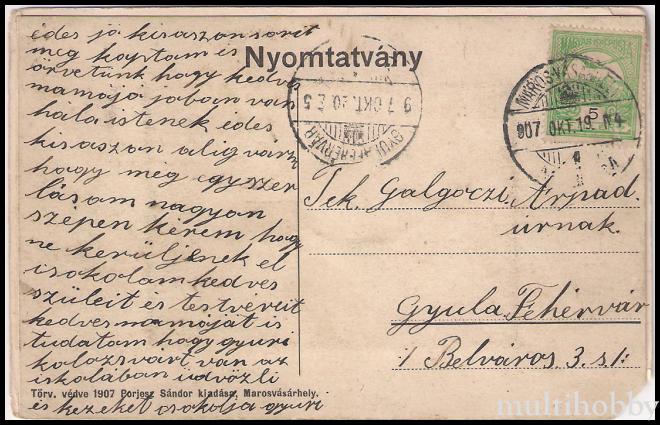 édes jó kisaszonsorit
meg kaptam és
örvetünk hogy kedves
mamájá joban van
hála istenek édes
kisaszon alig várk
hogy még egyszer
lásam nagyon
szépen kérem hogy
ne kerüljenek el
isokolamkedves
szüleit és testvéreit
kedvesmamáját is
tudatom hogy gyuri
kolozsvárt van az
iskolában üdvözli
és kezeket csokolja gyuri
Törv. védve 1907 Porjesz Sándor kiadása, Marosvásárhely.
Nyomtatvány
GYULAFEHÉRVÁR
97 OKT. 20
MAGYAR KIR. POSTA
5
MAROS-VÁSÁRHELY
907 OKT. 19. N4
Tek. Galgóczi Árpad
úrnak.
Gyula Fehérvár
Belváros 3. sz:
multihobby